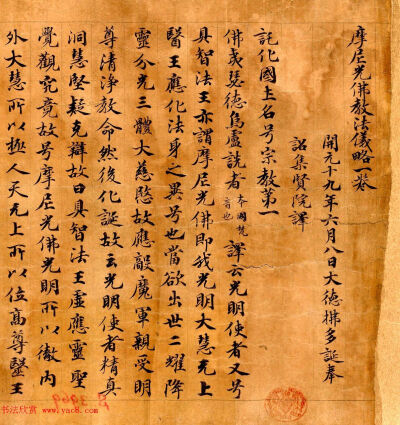 摩尼光佛教法儀略一卷
開元十九年六月八日大德拂多誕奉
詔集賢院譯
託化國土名号宗教第一
佛夷瑟德烏盧詵者 本國梵音也 譯云光明使者又号
具智法王亦謂摩尼光佛即我光明大慧无上
醫王應化法身之異号也當欲出世二耀降
靈分光三體大慈愍故應敵魔軍親受明
尊清淨教命然後化誕故云光明使者精真
洞慧堅疑克辯故曰具智法王虛應靈聖
覺觀究竟故号摩尼光佛光明所以徹內
外大慧所以極人天无上所以位高尊醫王
书法欣赏
www.yac8.com
3969